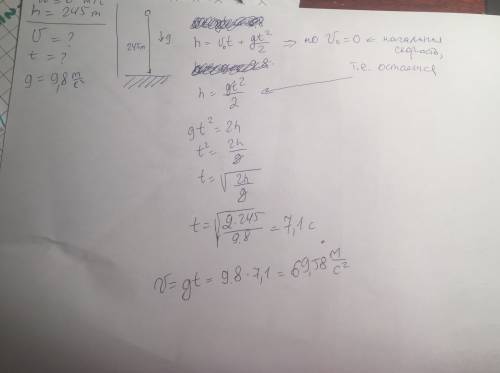 h = 245 m
V = ?
t = ?
g = 9,8 м/с²
245m
g
h = V₀t + gt²/2 ⇒ но V₀ = 0 ← начальная скорость,
т.е. остается
h = gt²/2
gt² = 2h
t² = 2h/g
t = √(2h/g)
t = √(2·245/9.8) = 7,1 с
V = gt = 9.8·7,1 = 69,58 м/с²